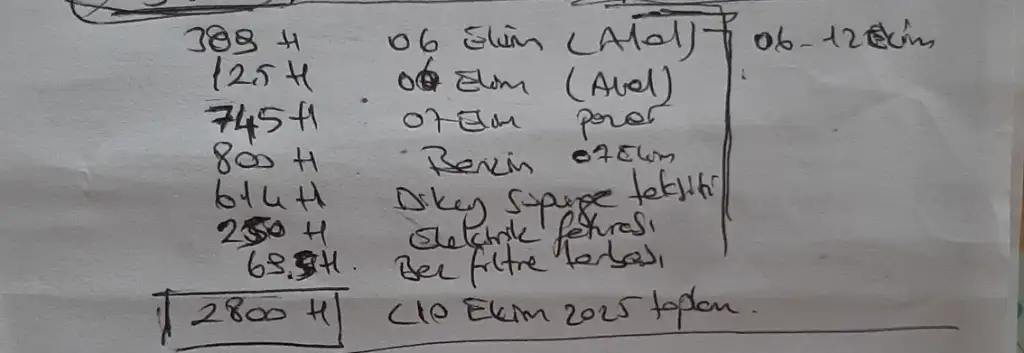 389 ₺ 06 Ekim (Atal) 06-12 Ekim
125 ₺ 06 Ekim (Atal)
745 ₺ 07 Ekim
800 ₺ Benzin 07 Ekim
614 ₺ Dikey Süpürge taksiti
250 ₺ Elektrik faturası
69.9 ₺. filtre torbası
2800 ₺ (10 Ekim 2025 toplam.